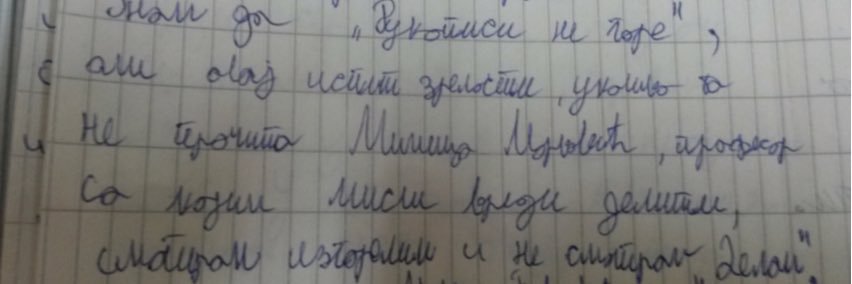 Знам да „Рукописи не горе",
али овај испит зрелости, уколико га
не прочита Милица, професор
са којим мисли вреди делити,
сматрам изгорелим и не сматрам „делом"